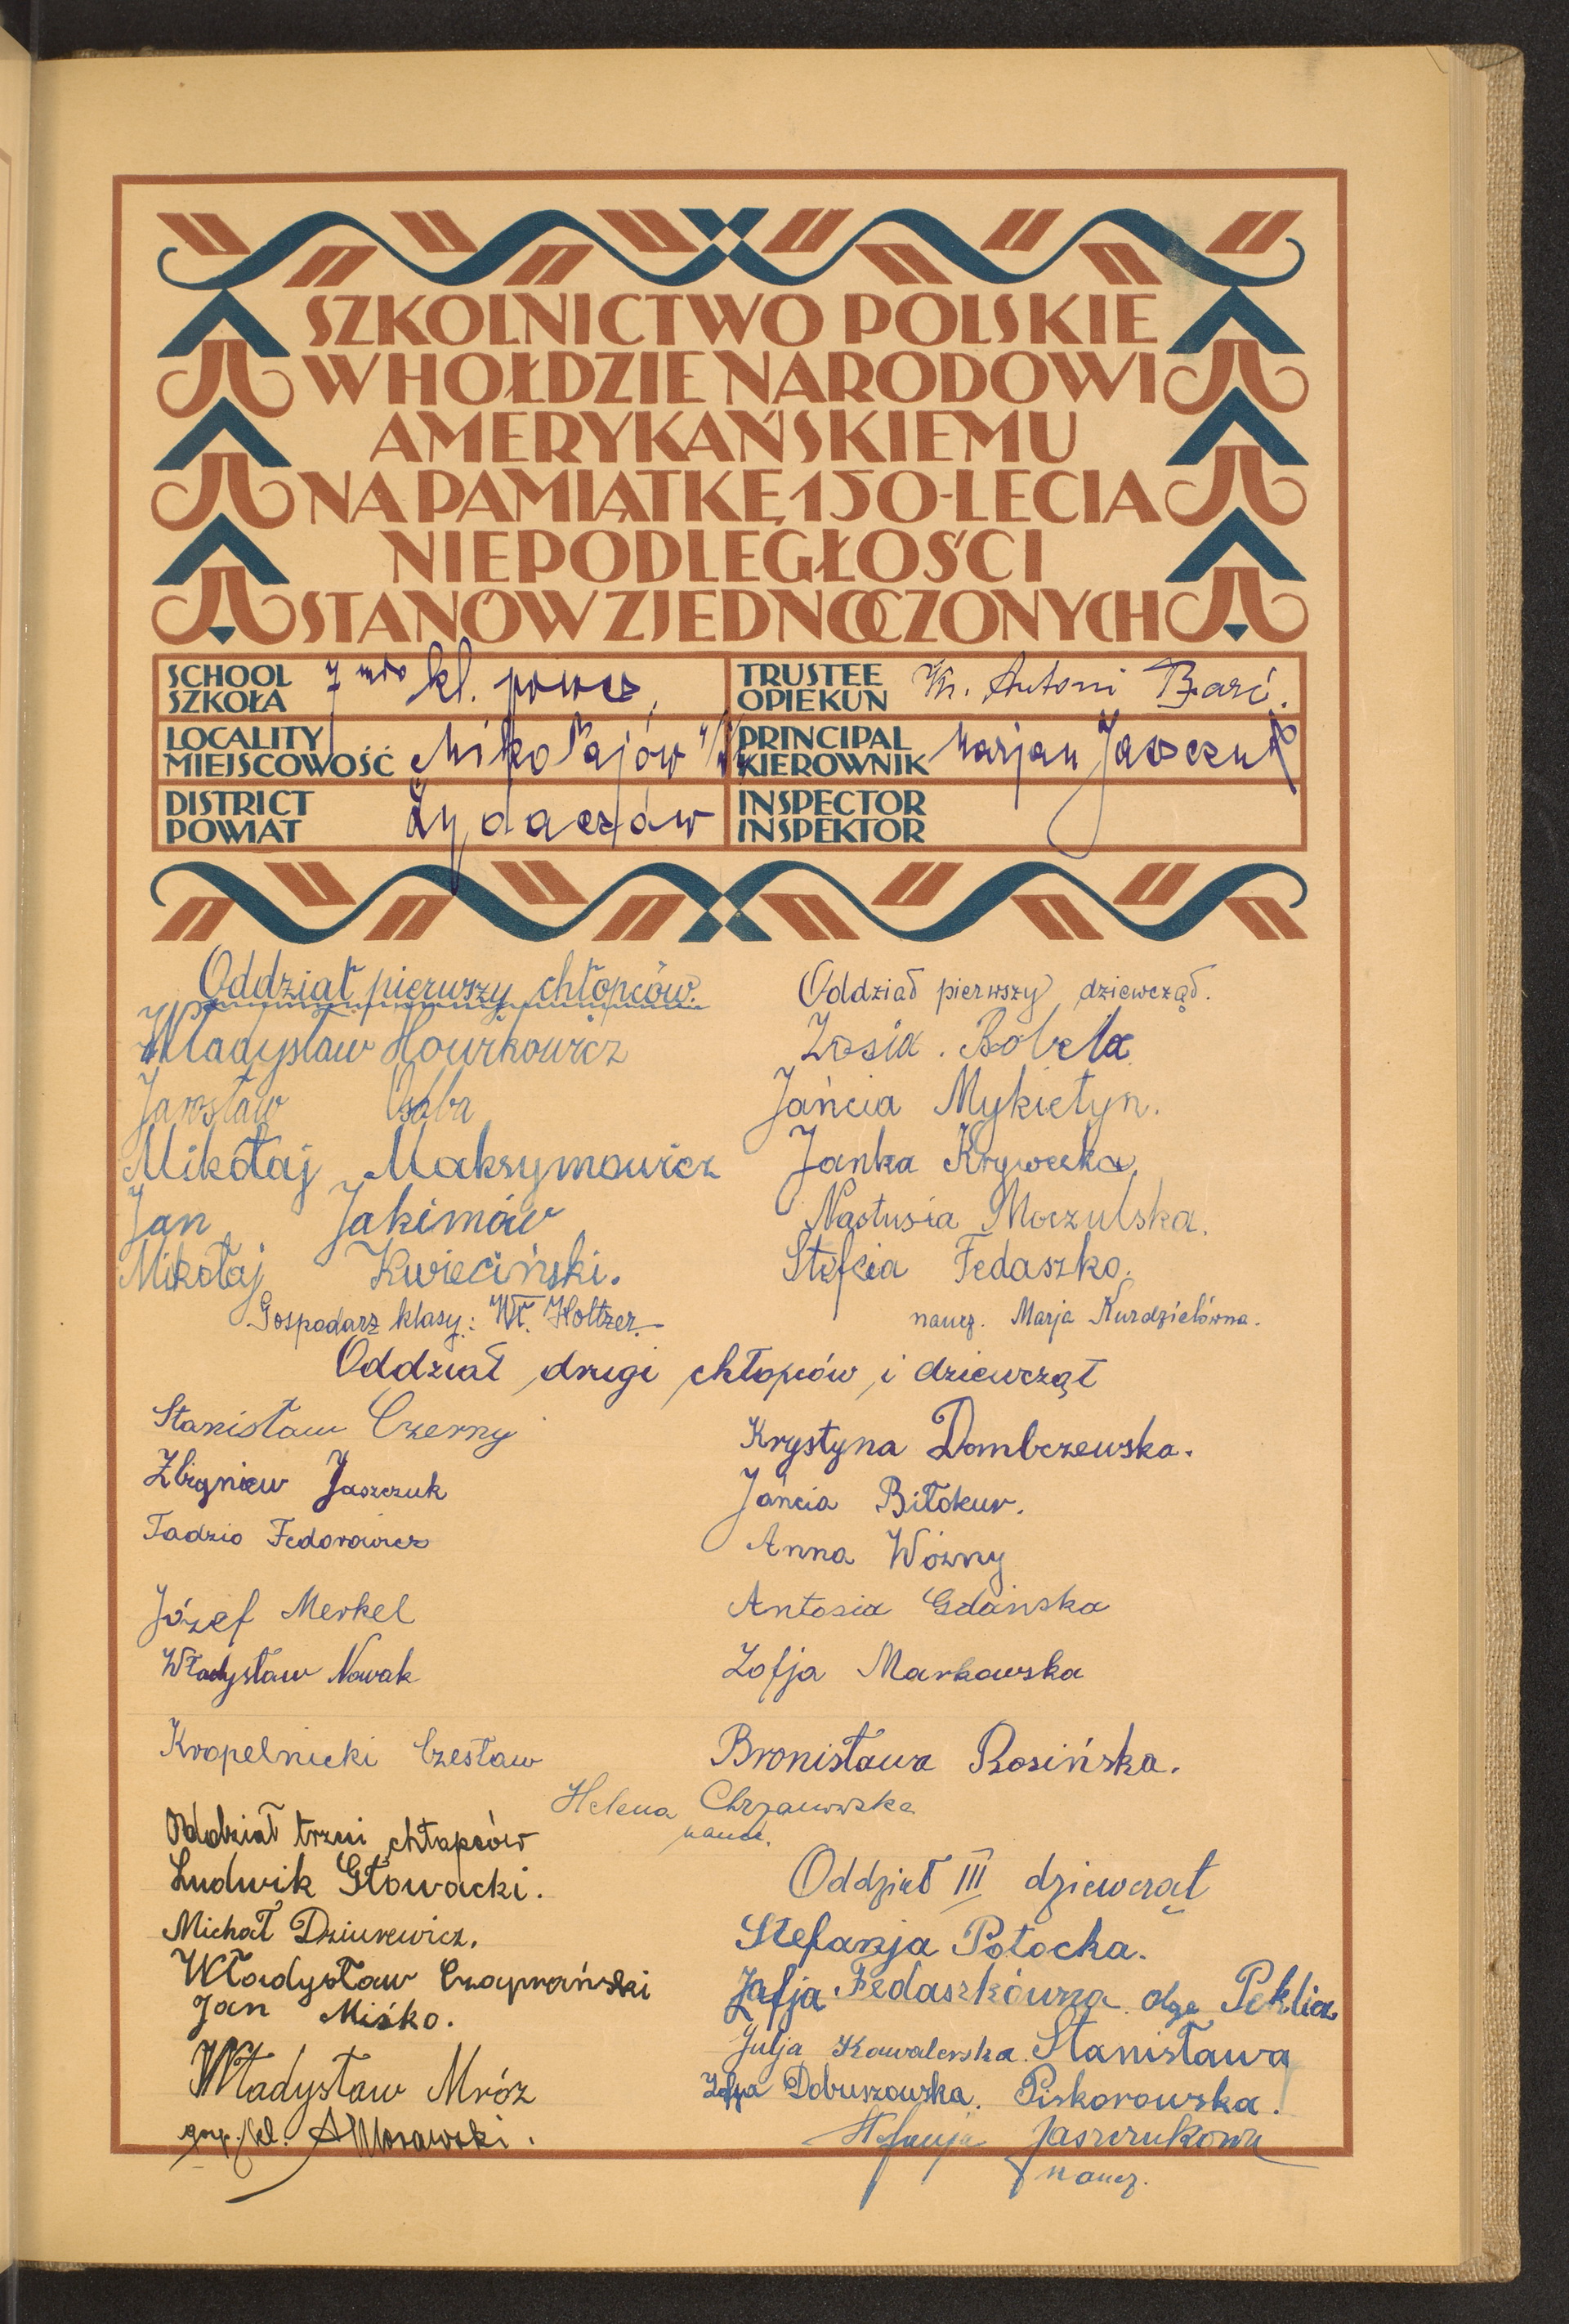 SZKOLNICTWO POLSKIE
W HOŁDZIE NARODOWI
AMERYKAŃSKIEMU
NA PAMIĄTKĘ 150-LECIA
NIEPODLEGŁOŚCI
STANÓW ZJEDNOCZONYCH
SCHOOL
SZKOŁA 7 mio kl. powsz.
TRUSTEE
OPIEKUN Antoni
LOCALITY
MIEJSCOWOŚĆ Mikołajów
PRINCIPAL
KIEROWNIK Marjan Jaszczuk
DISTRICT
POWIAT Żydaczów
INSPECTOR
INSPEKTOR
Oddział pierwszy chłopców.
Władysław Hourkowicz
Jarosław Osoba
Mikołaj Maksymowicz
Jan Jakimów
Mikołaj Kwieciński.
Gospodarz klasy: Wł. Holtzer.
Oddział pierwszy dziewcząt.
Zosia. Bobela
Jańcia Mykietyn.
Janka Krywecka,
Nastusia Moczulska.
Stefcia Fedaszko.
naucz. Marja Kurdzielówna.
Oddział drugi chłopców i dziewcząt
Stanisław Czerny
Zbigniew Jaszczuk
Tadzio Fedorowicz
Józef Merkel
Władysław Nowak
Kropelnicki Czesław
Krystyna Dombczewska.
Jańcia Biłokur.
Anna Woźny
Antosia Gdańska
Zofja Markowska
Bronisława Rosińska.
Helena Chrzanowska
naucz.
Oddział trzeci chłopców
Ludwik Głowacki.
Michał Dziurewicz.
Władysław Czaprański
Jan Miśko.
Władysław Mróz
gosp. kl. A Morawski.
Oddział III dziewcząt
Stefanja Potocka.
Zofja Fedaszkówna Olga Peklia
Julja Kowalerska. Stanisława
Zofja Dobuszowska. Piskorowska.
Stefanja Jaszczukowa
naucz.